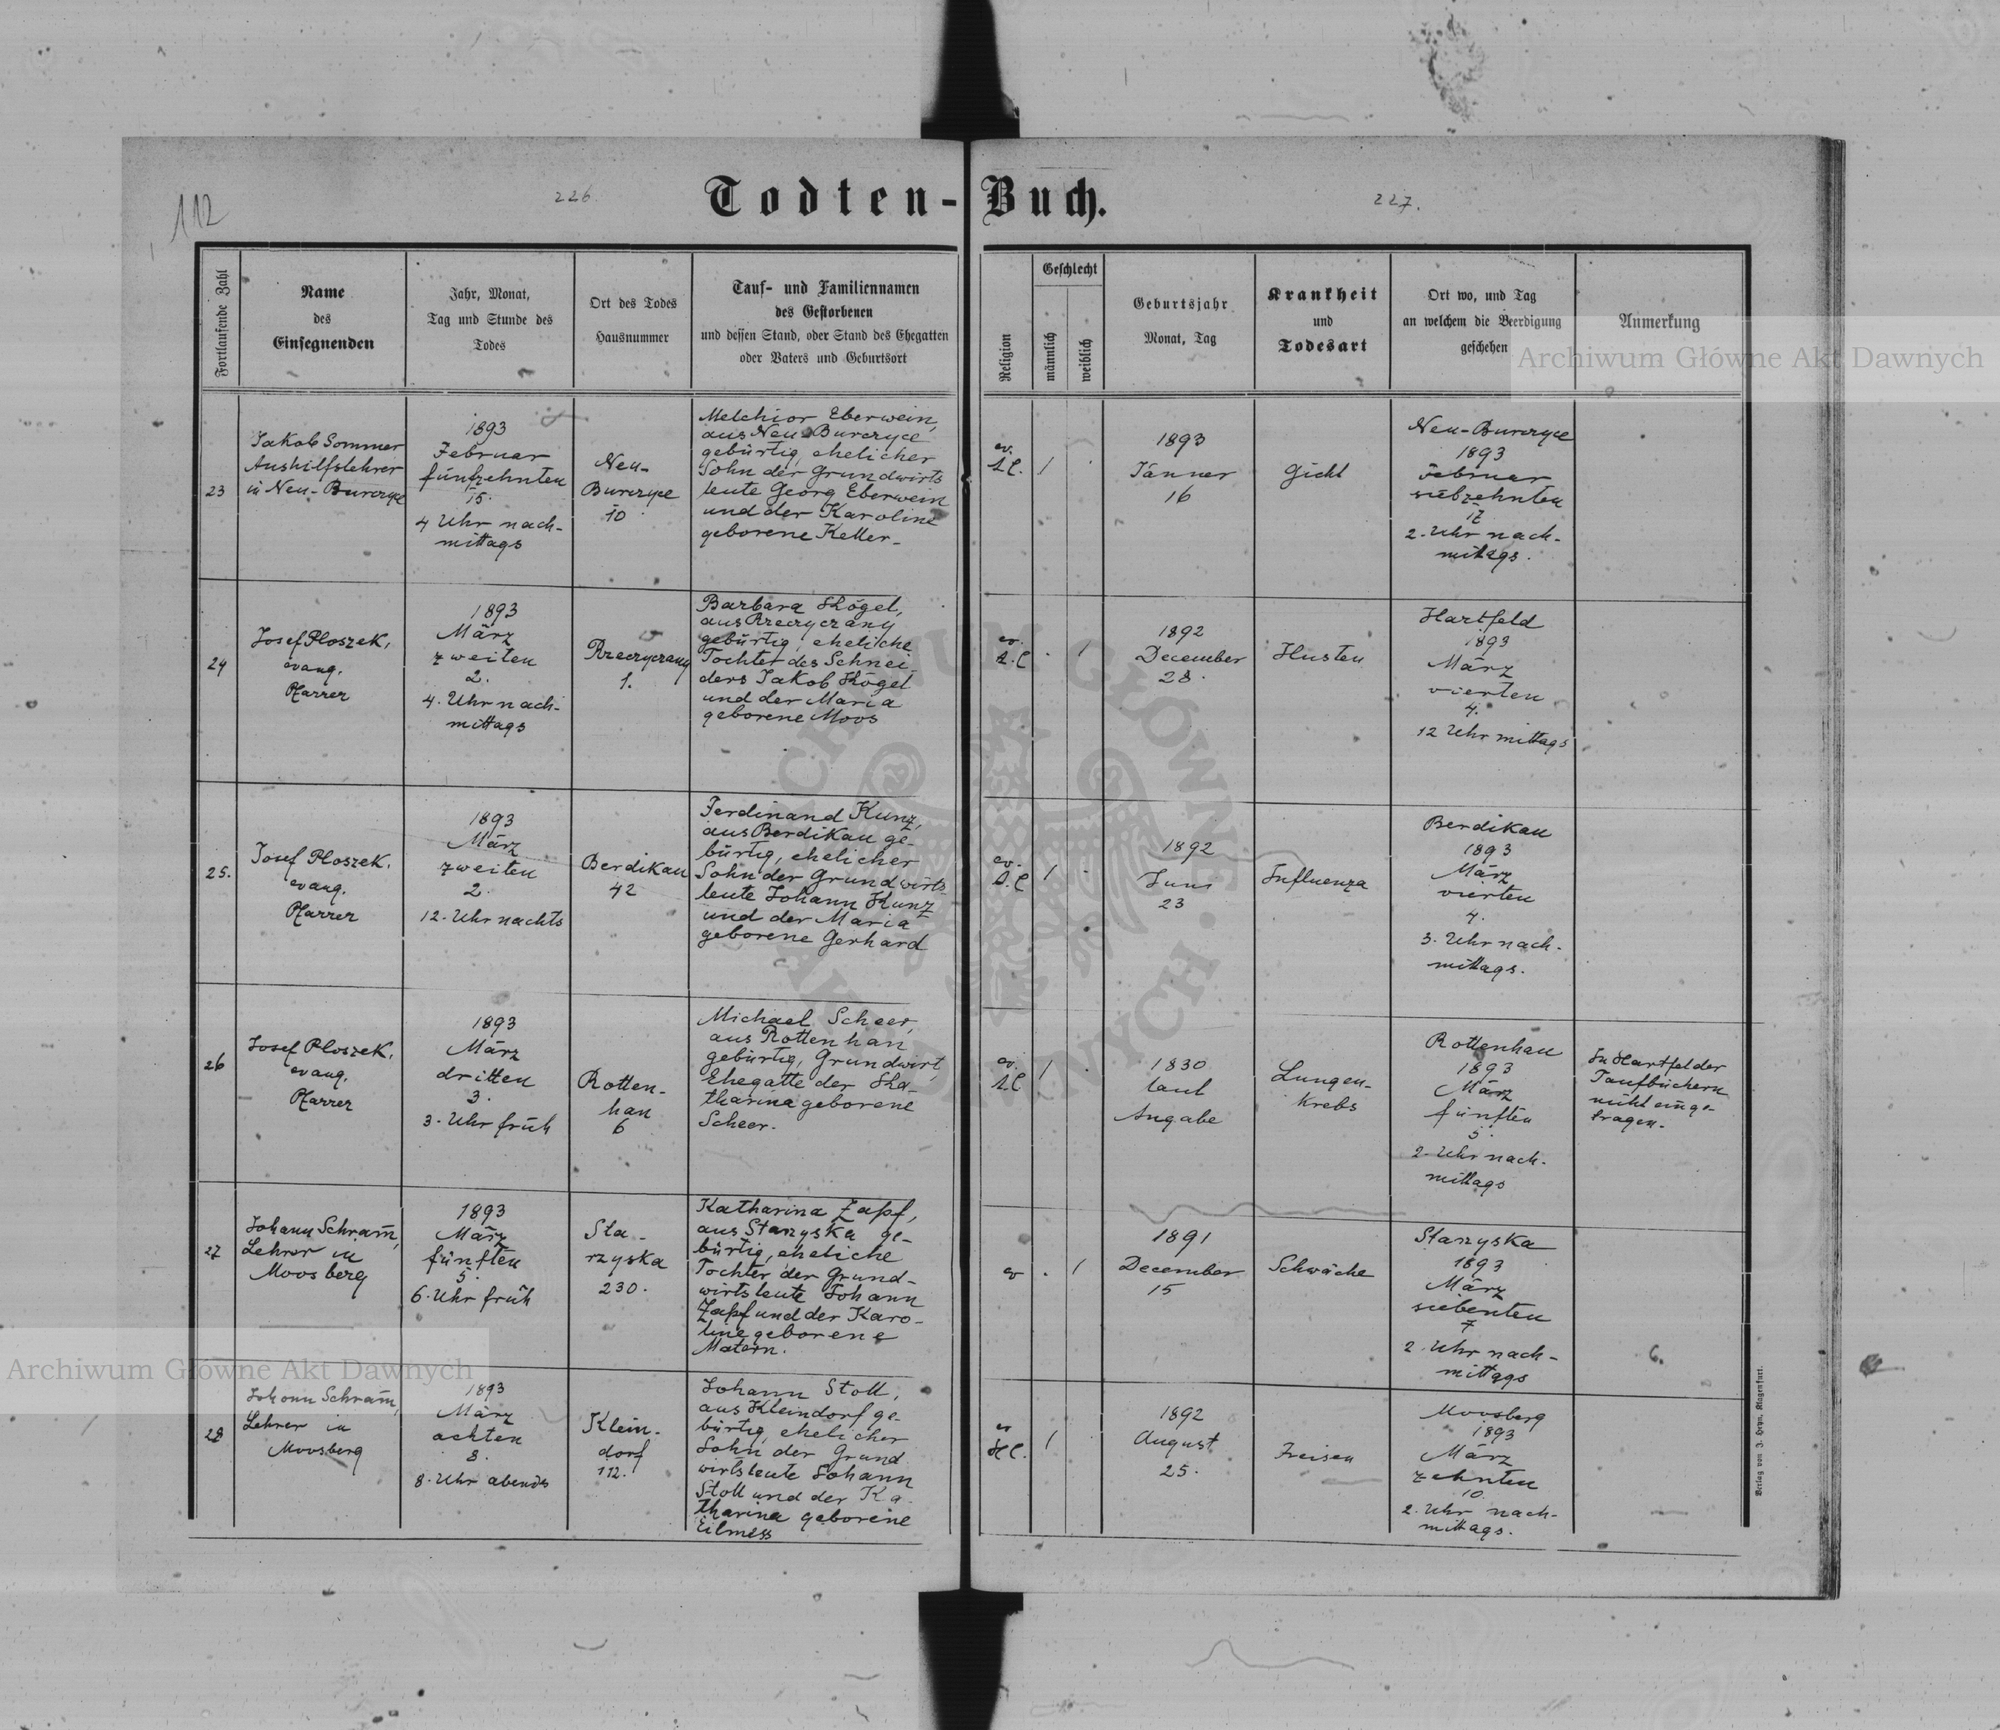 112
226
Todten-Buch.
227.
Fortlaufende Zahl
Name
des
Einsegnenden
Jahr, Monat,
Tag und Stunde des
Todes
Ort des Todes
Hausnummer
Tauf- und Familiennamen
des Gestorbenen
und dessen Stand, oder Stand des Ehegatten
oder Vaters und Geburtsort
Religion
Geschlecht
männlich
weiblich
Geburtsjahr
Monat, Tag
Krankheit
und
Todesart
Ort wo, und Tag
an welchem die Beerdigung
geschehen
Anmerkung
Archiwum Główne Akt Dawnych
23
Jakob Sommer
Aushilfslehrer
in Neu-Burczyce
1893
Februar
fünfzehnten
15.
4 Uhr nach-
mittags
Neu-
Burczyce
10
Melchior Eberwein,
aus Neu-Burczyce
gebürtig, ehelicher
Sohn der Grundwirts
leute Georg Eberwein
und der Karoline
geborene Keller.
ev.
A.C.
/
1893
Jänner
16
Gicht
Neu-Burczyce
1893
Februar
siebzehnten
17
2. Uhr nach-
mittags.
24
Josef Ploszek,
evang.
Pfarrer
1893
März
zweiten
2.
4. Uhr nach-
mittags
Rzeczyczany
1.
Barbara Kögel,
aus Rzeczyczany
gebürtig, eheliche
Tochter des Schnei-
ders Jakob Kögel
und der Maria
geborene Moos
ev.
A.C
/
1892
December
28.
Husten
Hartfeld
1893
März
vierten
4.
12 Uhr mittags
25.
Josef Ploszek,
evang.
Pfarrer
1893
März
zweiten
2.
12. Uhr nachts
Berdikau
42
Ferdinand Kunz,
aus Berdikau ge-
bürtig, ehelicher
Sohn der Grundwirts-
leute Johann Kunz
und der Maria
geborene Gerhard
ev.
A.C
/
1892
Juni
23
Influenza
Berdikau
1893
März
vierten
4.
3. Uhr nach-
mittags.
26
Josef Ploszek,
evang.
Pfarrer
1893
März
dritten
3.
3. Uhr früh
Rotten-
han
6
Michael Scheer,
aus Rottenhan
gebürtig, Grundwirt,
Ehegatte der Ka-
tharina geborene
Scheer.
ev.
A.C
/
1830
laut
Angabe
Lungen-
krebs
Rottenhan
1893
März
fünften
5.
2. Uhr nach-
mittags
In Hartfelder
Taufbüchern
nicht einge-
tragen.
27
Johann Schram̄,
Lehrer in
Moosberg
1893
März
fünften
5.
6. Uhr früh
Sta-
rzyska
230.
Katharina Zapf,
aus Starzyska ge-
bürtig, eheliche
Tochter der Grund-
wirtsleute Johann
Zapf und der Karo-
line geborene
Matern.
ev
/
1891
December
15
Schwäche
Starzyska
1893
März
siebenten
7
2. Uhr nach-
mittags
28
Johann Schram̄,
Lehrer in
Moosberg
1893
März
achten
8.
8. Uhr abends
Klein-
dorf
112.
Johann Stoll,
aus Kleindorf ge-
bürtig, ehelicher
Sohn der Grund
wirtsleute Johann
Stoll und der Ka-
tharina geborene
Eilmess
ev
H.C.
/
1892
August
25.
Freisen
Moosberg
1893
März
zehnten
10.
2. Uhr nach-
mittags.
Verlag von J. Heyn, Klagenfurt.
Archiwum Główne Akt Dawnych
ARCHIWUM GŁÓWNE AKT DAWNYCH